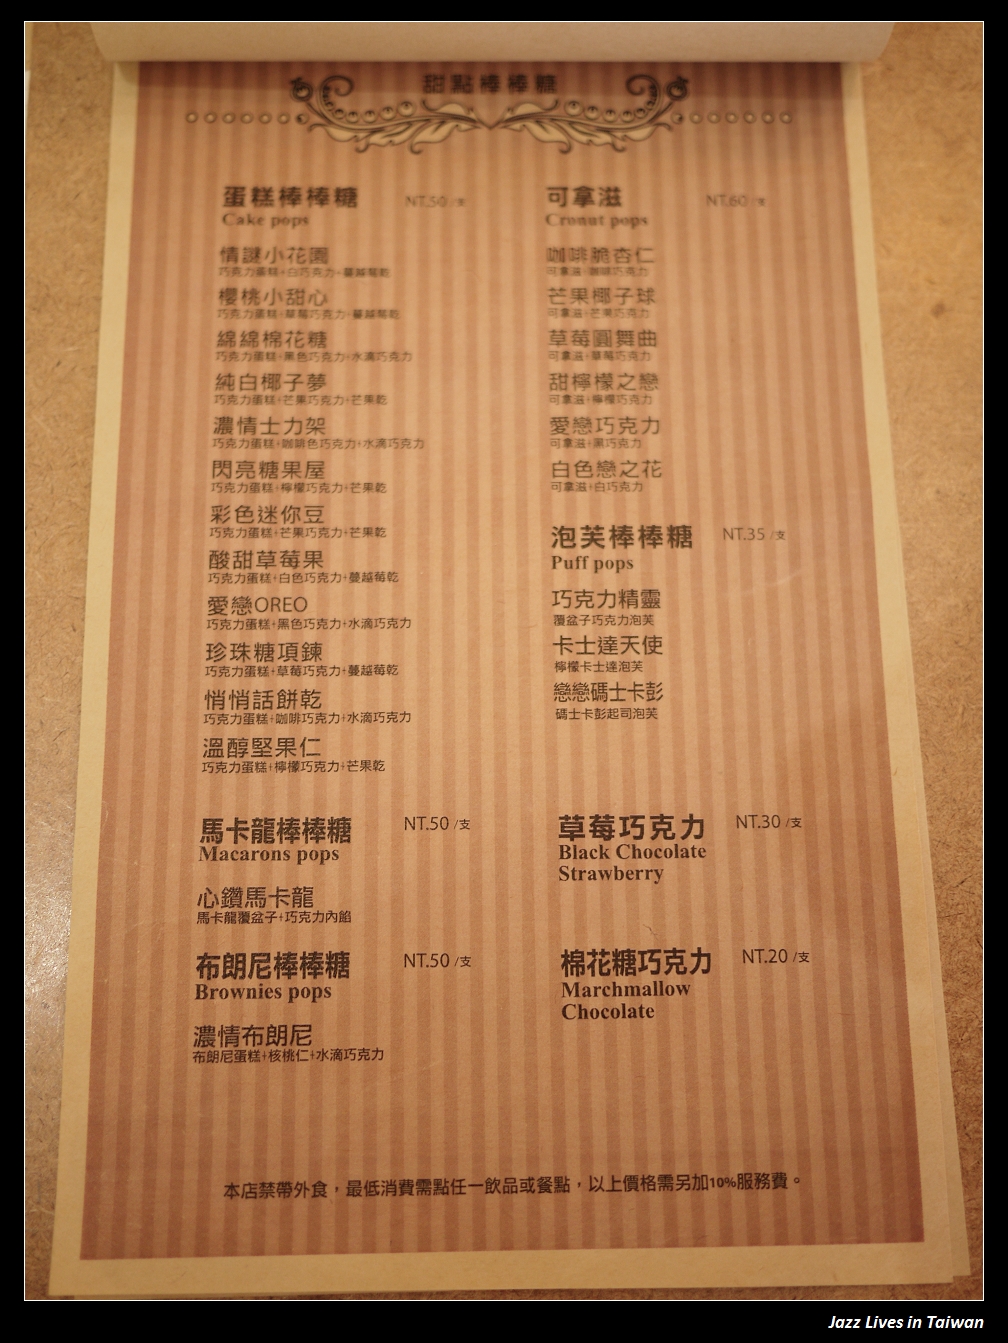 甜點棒棒糖
蛋糕棒棒糖 NT.50 /支
Cake pops
情謎小花園
巧克力蛋糕+白巧克力+蔓越莓乾
櫻桃小甜心
巧克力蛋糕+草莓巧克力+蔓越莓乾
綿綿棉花糖
巧克力蛋糕+黑色巧克力+水滴巧克力
純白椰子夢
巧克力蛋糕+芒果巧克力+芒果乾
濃情士力架
巧克力蛋糕+咖啡色巧克力+水滴巧克力
閃亮糖果屋
巧克力蛋糕+檸檬巧克力+芒果乾
彩色迷你豆
巧克力蛋糕+芒果巧克力+芒果乾
酸甜草莓果
巧克力蛋糕+白色巧克力+蔓越莓乾
愛戀OREO
巧克力蛋糕+黑色巧克力+水滴巧克力
珍珠糖項鍊
巧克力蛋糕+草莓巧克力+蔓越莓乾
悄悄話餅乾
巧克力蛋糕+咖啡巧克力+水滴巧克力
溫醇堅果仁
巧克力蛋糕+檸檬巧克力+芒果乾
馬卡龍棒棒糖 NT.50 /支
Macarons pops
心鑽馬卡龍
馬卡龍覆盆子+巧克力內餡
布朗尼棒棒糖 NT.50 /支
Brownies pops
濃情布朗尼
布朗尼蛋糕+核桃仁+水滴巧克力
可拿滋 NT.60 /支
Cronut pops
咖啡脆杏仁
可拿滋+咖啡巧克力
芒果椰子球
可拿滋+芒果巧克力
草莓圓舞曲
可拿滋+草莓巧克力
甜檸檬之戀
可拿滋+檸檬巧克力
愛戀巧克力
可拿滋+黑巧克力
白色戀之花
可拿滋+白巧克力
泡芙棒棒糖 NT.35 /支
Puff pops
巧克力精靈
覆盆子巧克力泡芙
卡士達天使
檸檬卡士達泡芙
戀戀碼士卡彭
碼士卡彭起司泡芙
草莓巧克力 NT.30 /支
Black Chocolate
Strawberry
棉花糖巧克力 NT.20 /支
Marchmallow
Chocolate
本店禁帶外食，最低消費需點任一飲品或餐點，以上價格需另加10%服務費。
Jazz Lives in Taiwan